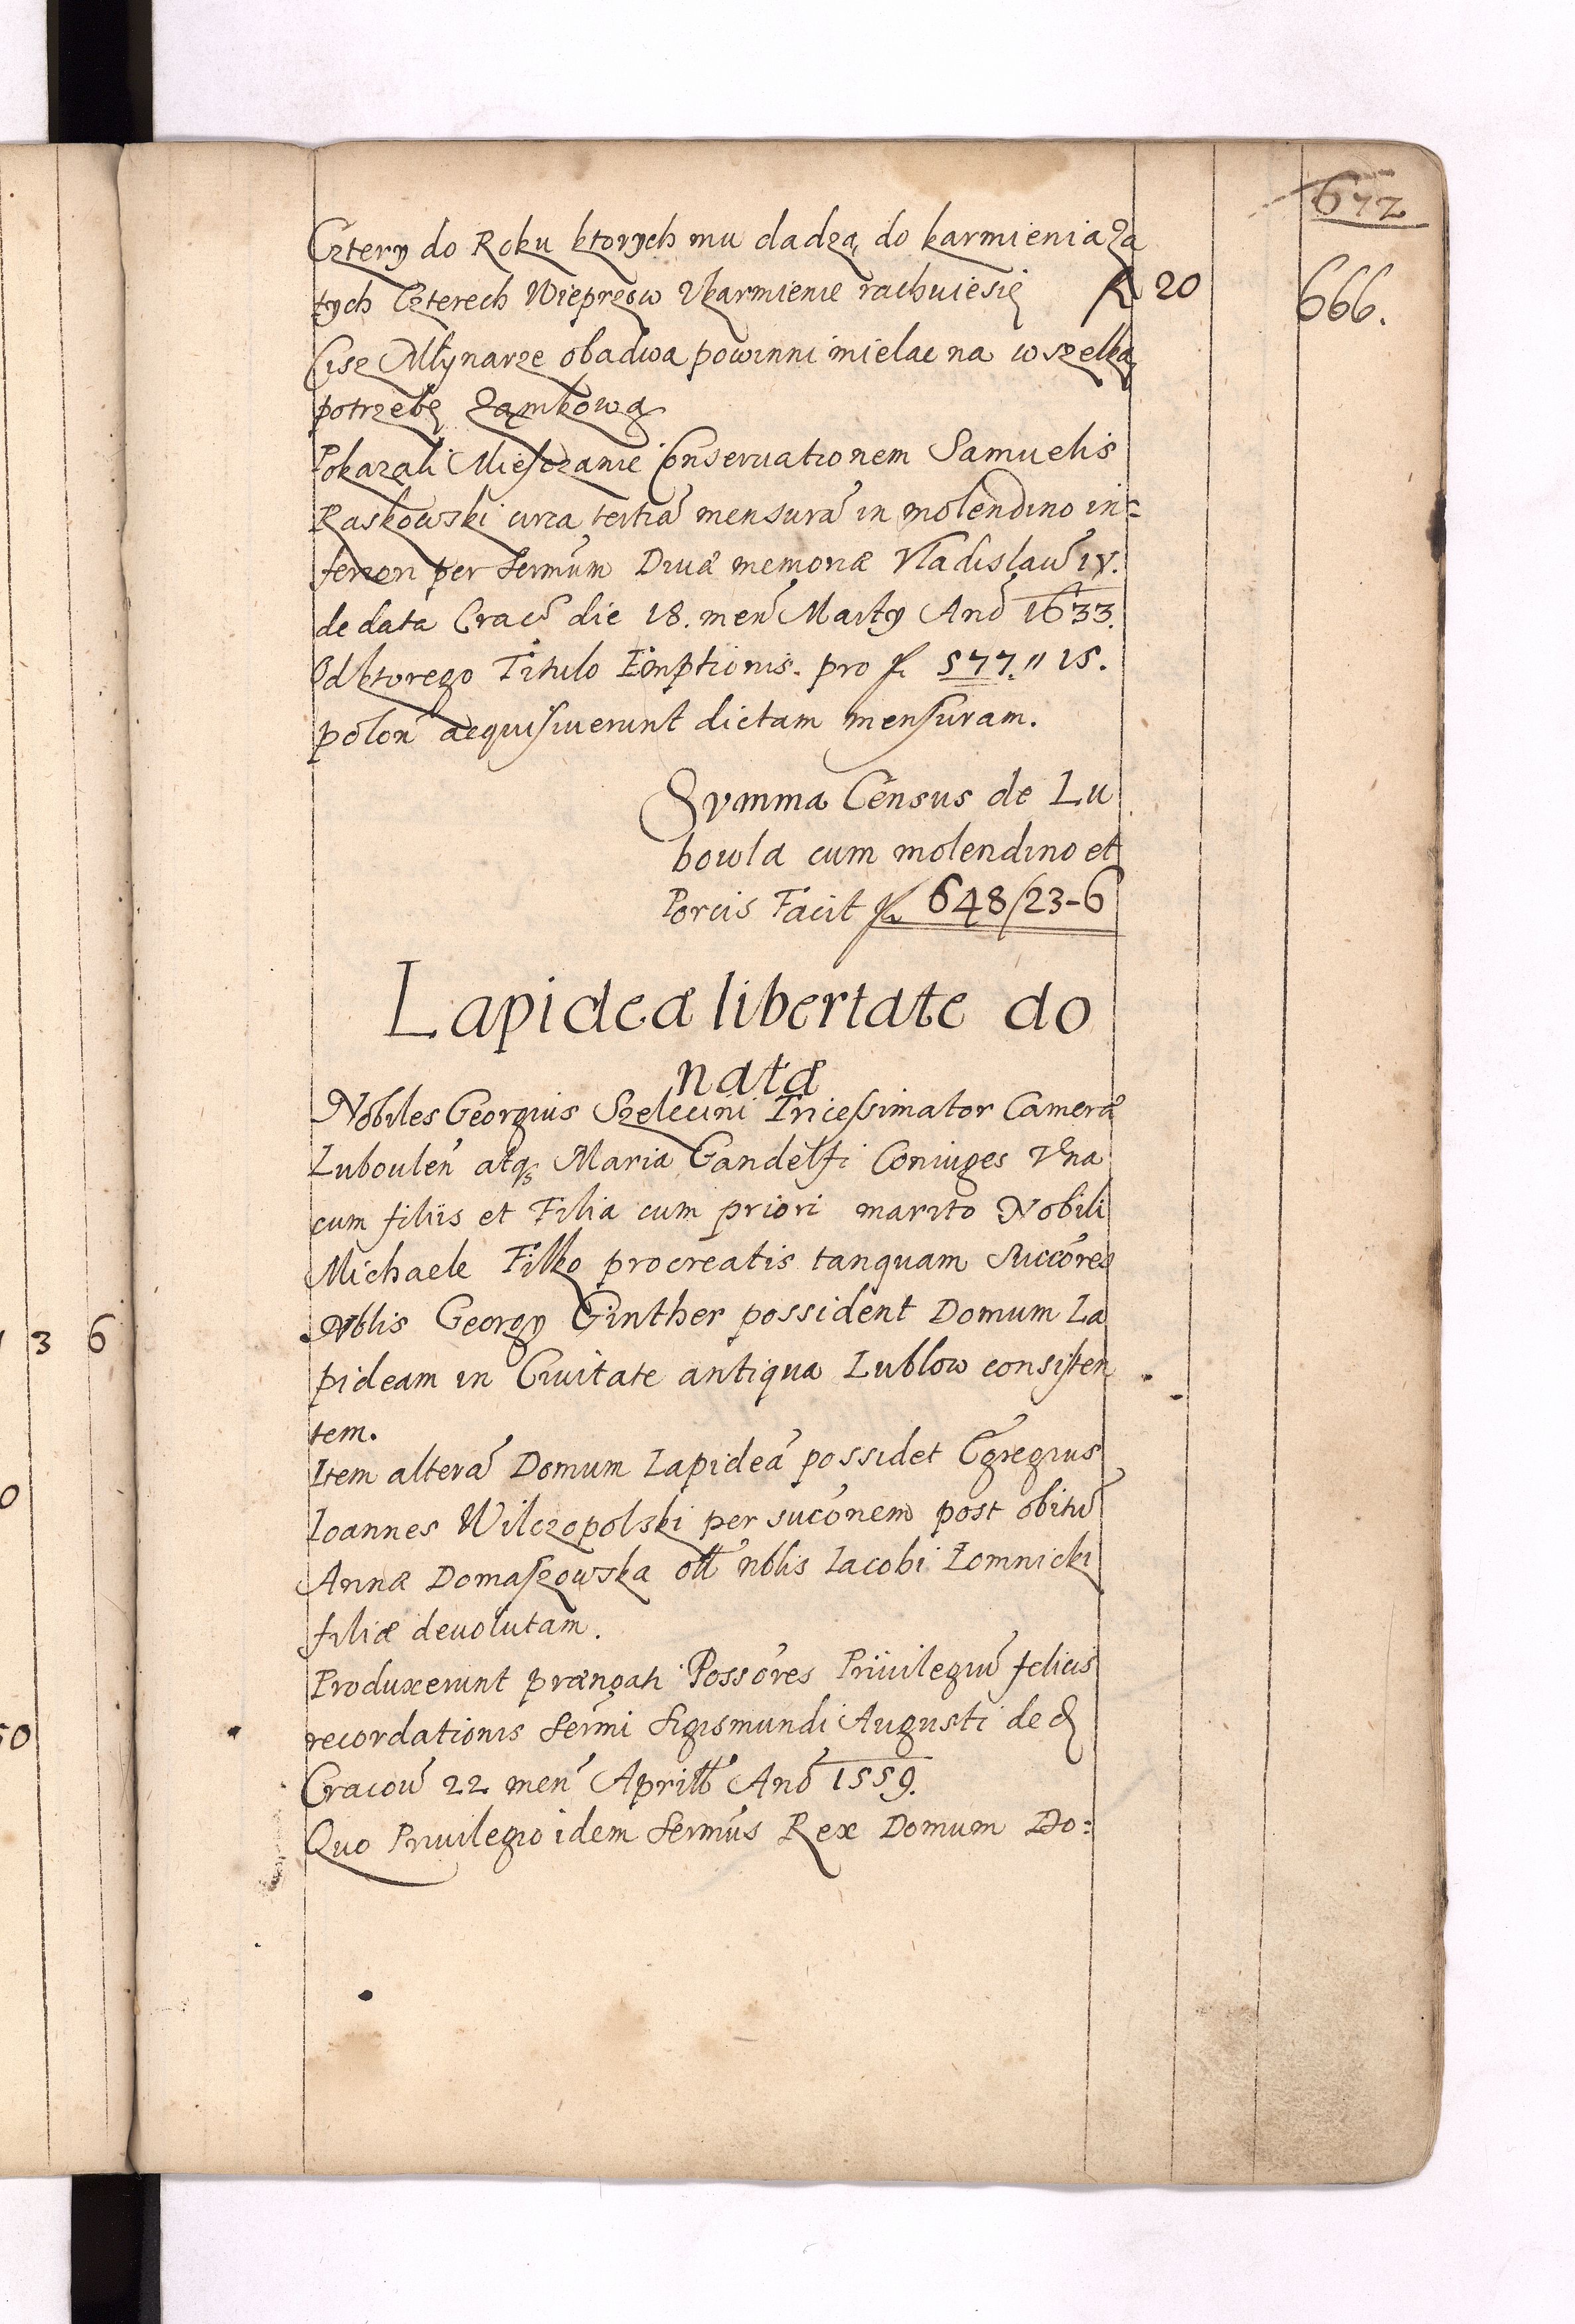 672
666.
Cztery do Roku ktorych mu dadzą do karmienia Za
tych Czterech Wieprzow Vkarmienie rachuiesię fl 20
Cisz Młynarze obadwa powinni mielac na wszelką
potrzebę Zamkową
Pokazali Mieſczanie Conseruationem Samuelis
Raskowski circa tertiā mensurā in molendino in=
feriori per Sermum Diuæ memoriæ Vladislaū IV.
de data Crac die 18. men Marty Ano 1633.
Od ktorego Titulo Emptionis. pro fl 577.〃 15.
polon acquiſiuerunt dictam menſuram.
Summa Census de Lu
bowla cum molendino et
Porcis Facit fl 648/23-6
Lapideæ libertate do
natæ
Nobiles Georgius Szeleceni Triceſsimator Cameræ
Luboulen atq₃ Maria Gandelfi Coniuges Vna
cum filiis et Filia cum priori marito Nobili
Michaele Filko procreatis tanquam Succores
Nblis Georgy Ginther possident Domum La
pideam in Ciuitate antiqua Lublow consiſten
tem.
Item alterā Domum Lapideā possidet Egregius
Ioannes Wilczopolski per suconem post obitū
Annæ Domaſzowska oll nblis Iacobi Łomnicki
filiæ deuolutam.
Produxerunt prænoati Possores Priuilegiū felicis
recordationis Sermi Sigismundi Augusti de d
Cracou 22 men Aprill Ano 1559.
Quo Priuilegio idem Sermus Rex Domum Do:
3 6
0
50